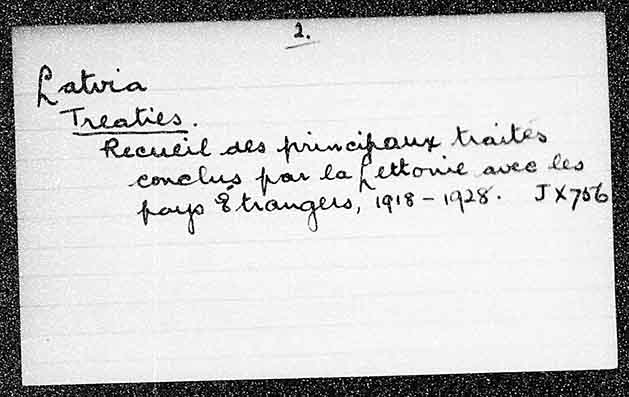 2.
Latvia
Treaties.
Recueil des principaux traités
conclus par la Lettonie avec les
pays Étrangers, 1918-1928. JX756